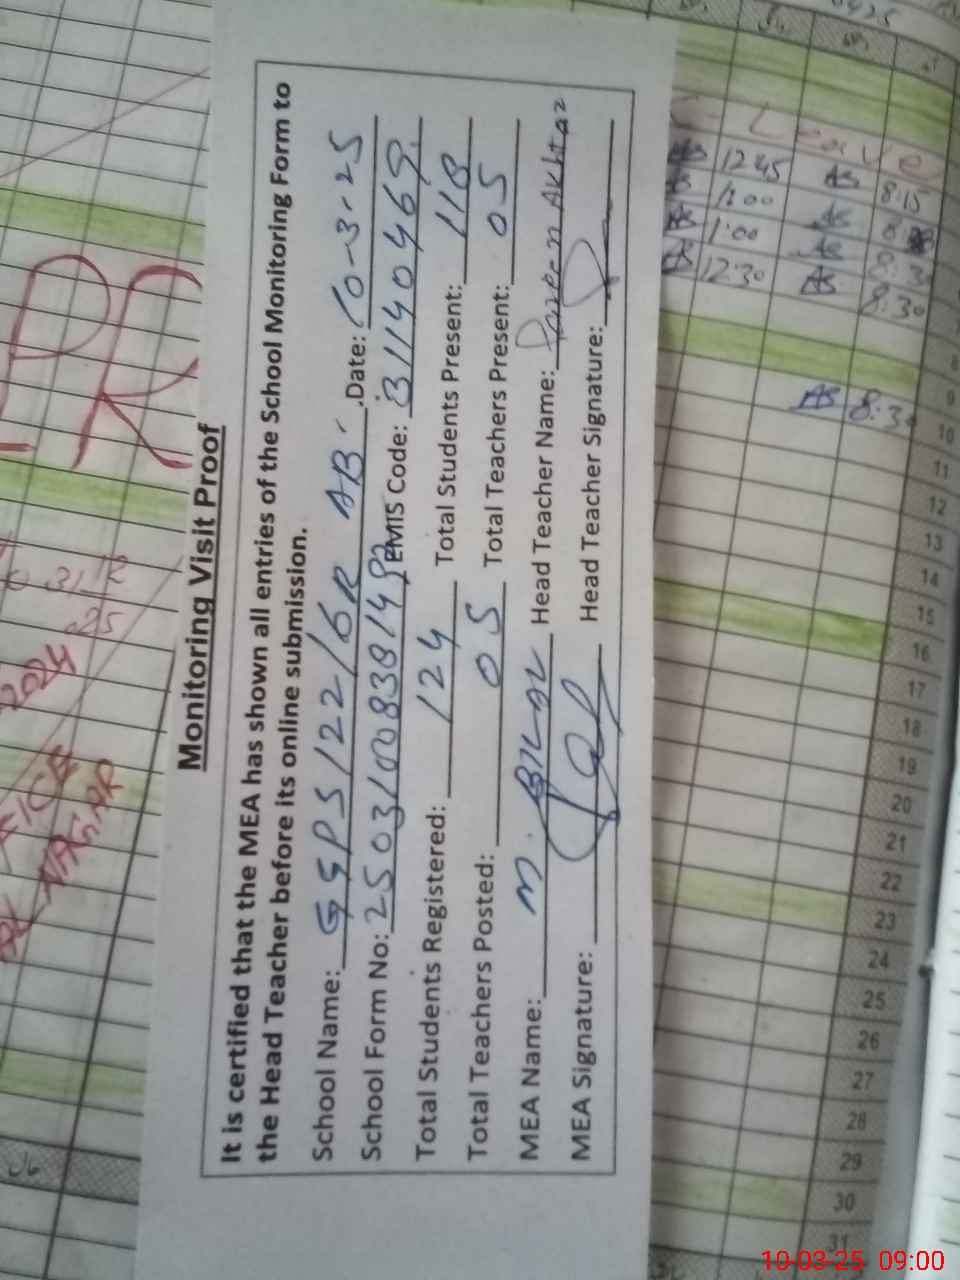 Monitoring Visit Proof
It is certified that the MEA has shown all entries of the School Monitoring Form to
the Head Teacher before its online submission.
School Name: GGPS 122/6R AB. Date: 10-3-25
School Form No: EMIS Code: 31140469
Total Students Registered: 124 Total Students Present: 118
Total Teachers Posted: 05 Total Teachers Present: 05
MEA Name: M. Bilal Head Teacher Name: Parveen Akhtar
MEA Signature: Head Teacher Signature:
PR
2024
C-Leave
1245 8:15
1:00
1:00 8:30
12:30 8:30
8:30
8
9
10
11
12
13
14
15
16
17
18
19
20
21
22
23
24
25
26
27
28
29
30
31
10-03-25 09:00